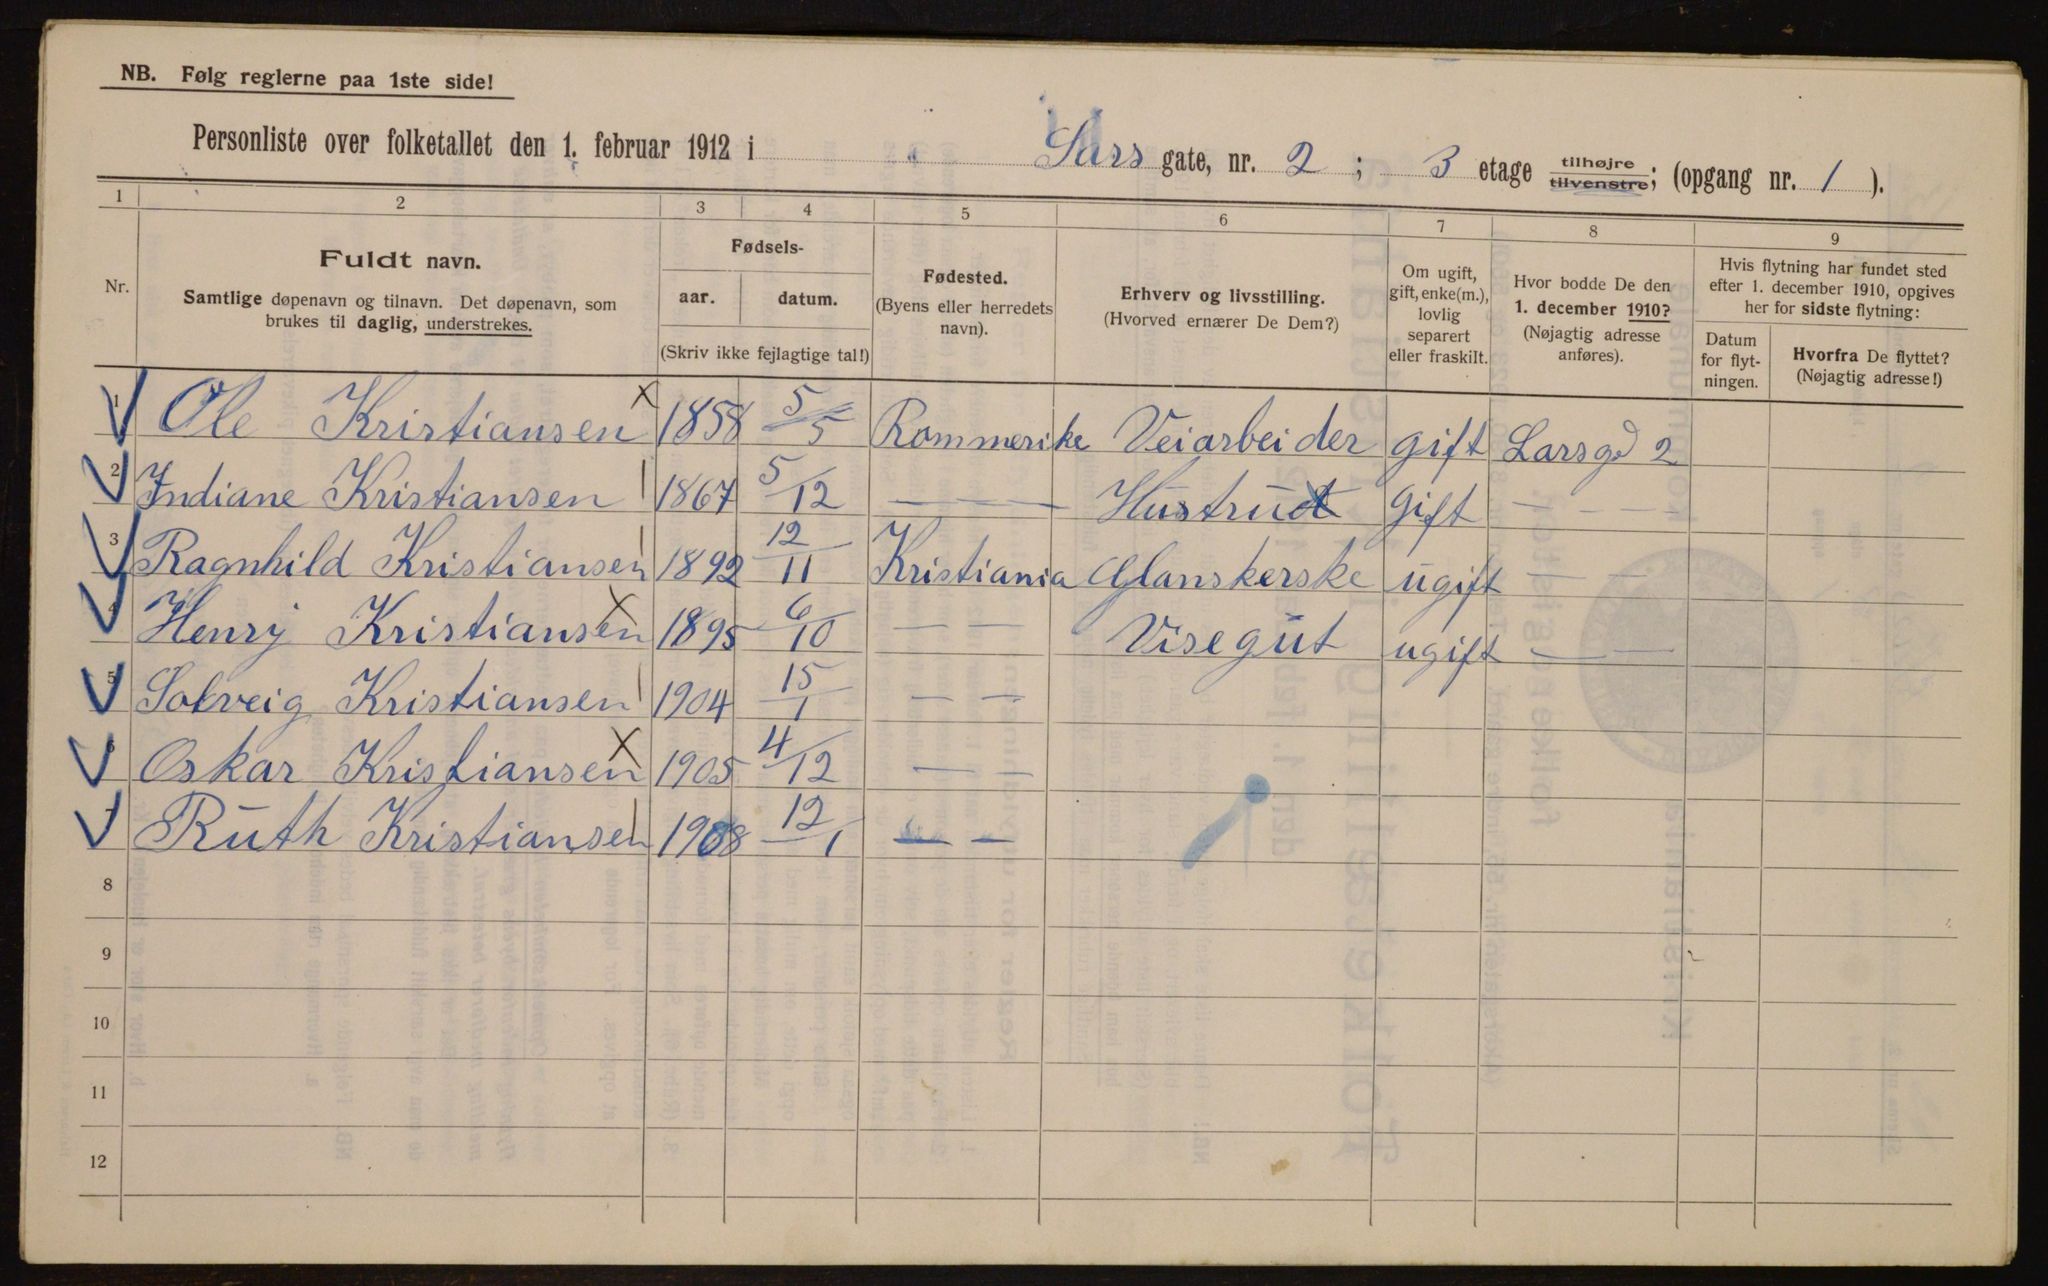 NB. Følg reglerne paa 1ste side!
Personliste over folketallet den 1. februar 1912 i Sars gate, nr. 2 ; 3 etage tilhøjre tilvenstre; (opgang nr. 1 ).
1 2 3 4 5 6 7 8 9
Nr.
Fuldt navn.
Samtlige døpenavn og tilnavn. Det døpenavn, som
brukes til daglig, understrekes.
Fødsels-
aar. datum.
(Skriv ikke fejlagtige tal!)
Fødested.
(Byens eller herredets
navn).
Erhverv og livsstilling.
(Hvorved ernærer De Dem?)
Om ugift,
gift, enke(m.),
lovlig
separert
eller fraskilt.
Hvor bodde De den
1. december 1910?
(Nøjagtig adresse
anføres).
Hvis flytning har fundet sted
efter 1. december 1910, opgives
her for sidste flytning:
Datum
for flyt-
ningen.
Hvorfra De flyttet?
(Nøjagtig adresse!)
1 Ole Kristiansen x 1858 5/5 Rommerike Veiarbeider gift Sarsgd 2
2 Indiane Kristiansen 1 1867 5/12 — — Hustru gift — — —
3 Ragnhild Kristiansen 1 1892 12/11 Kristiania Glanskerske ugift — —
4 Henry Kristiansen x 1895 6/10 — — Visegut ugift — —
5 Solveig Kristiansen 1 1904 15/1 — —
6 Oskar Kristiansen x 1905 4/12 — —
7 Ruth Kristiansen 1 1908 12/1 — —
8
9
10
11
12